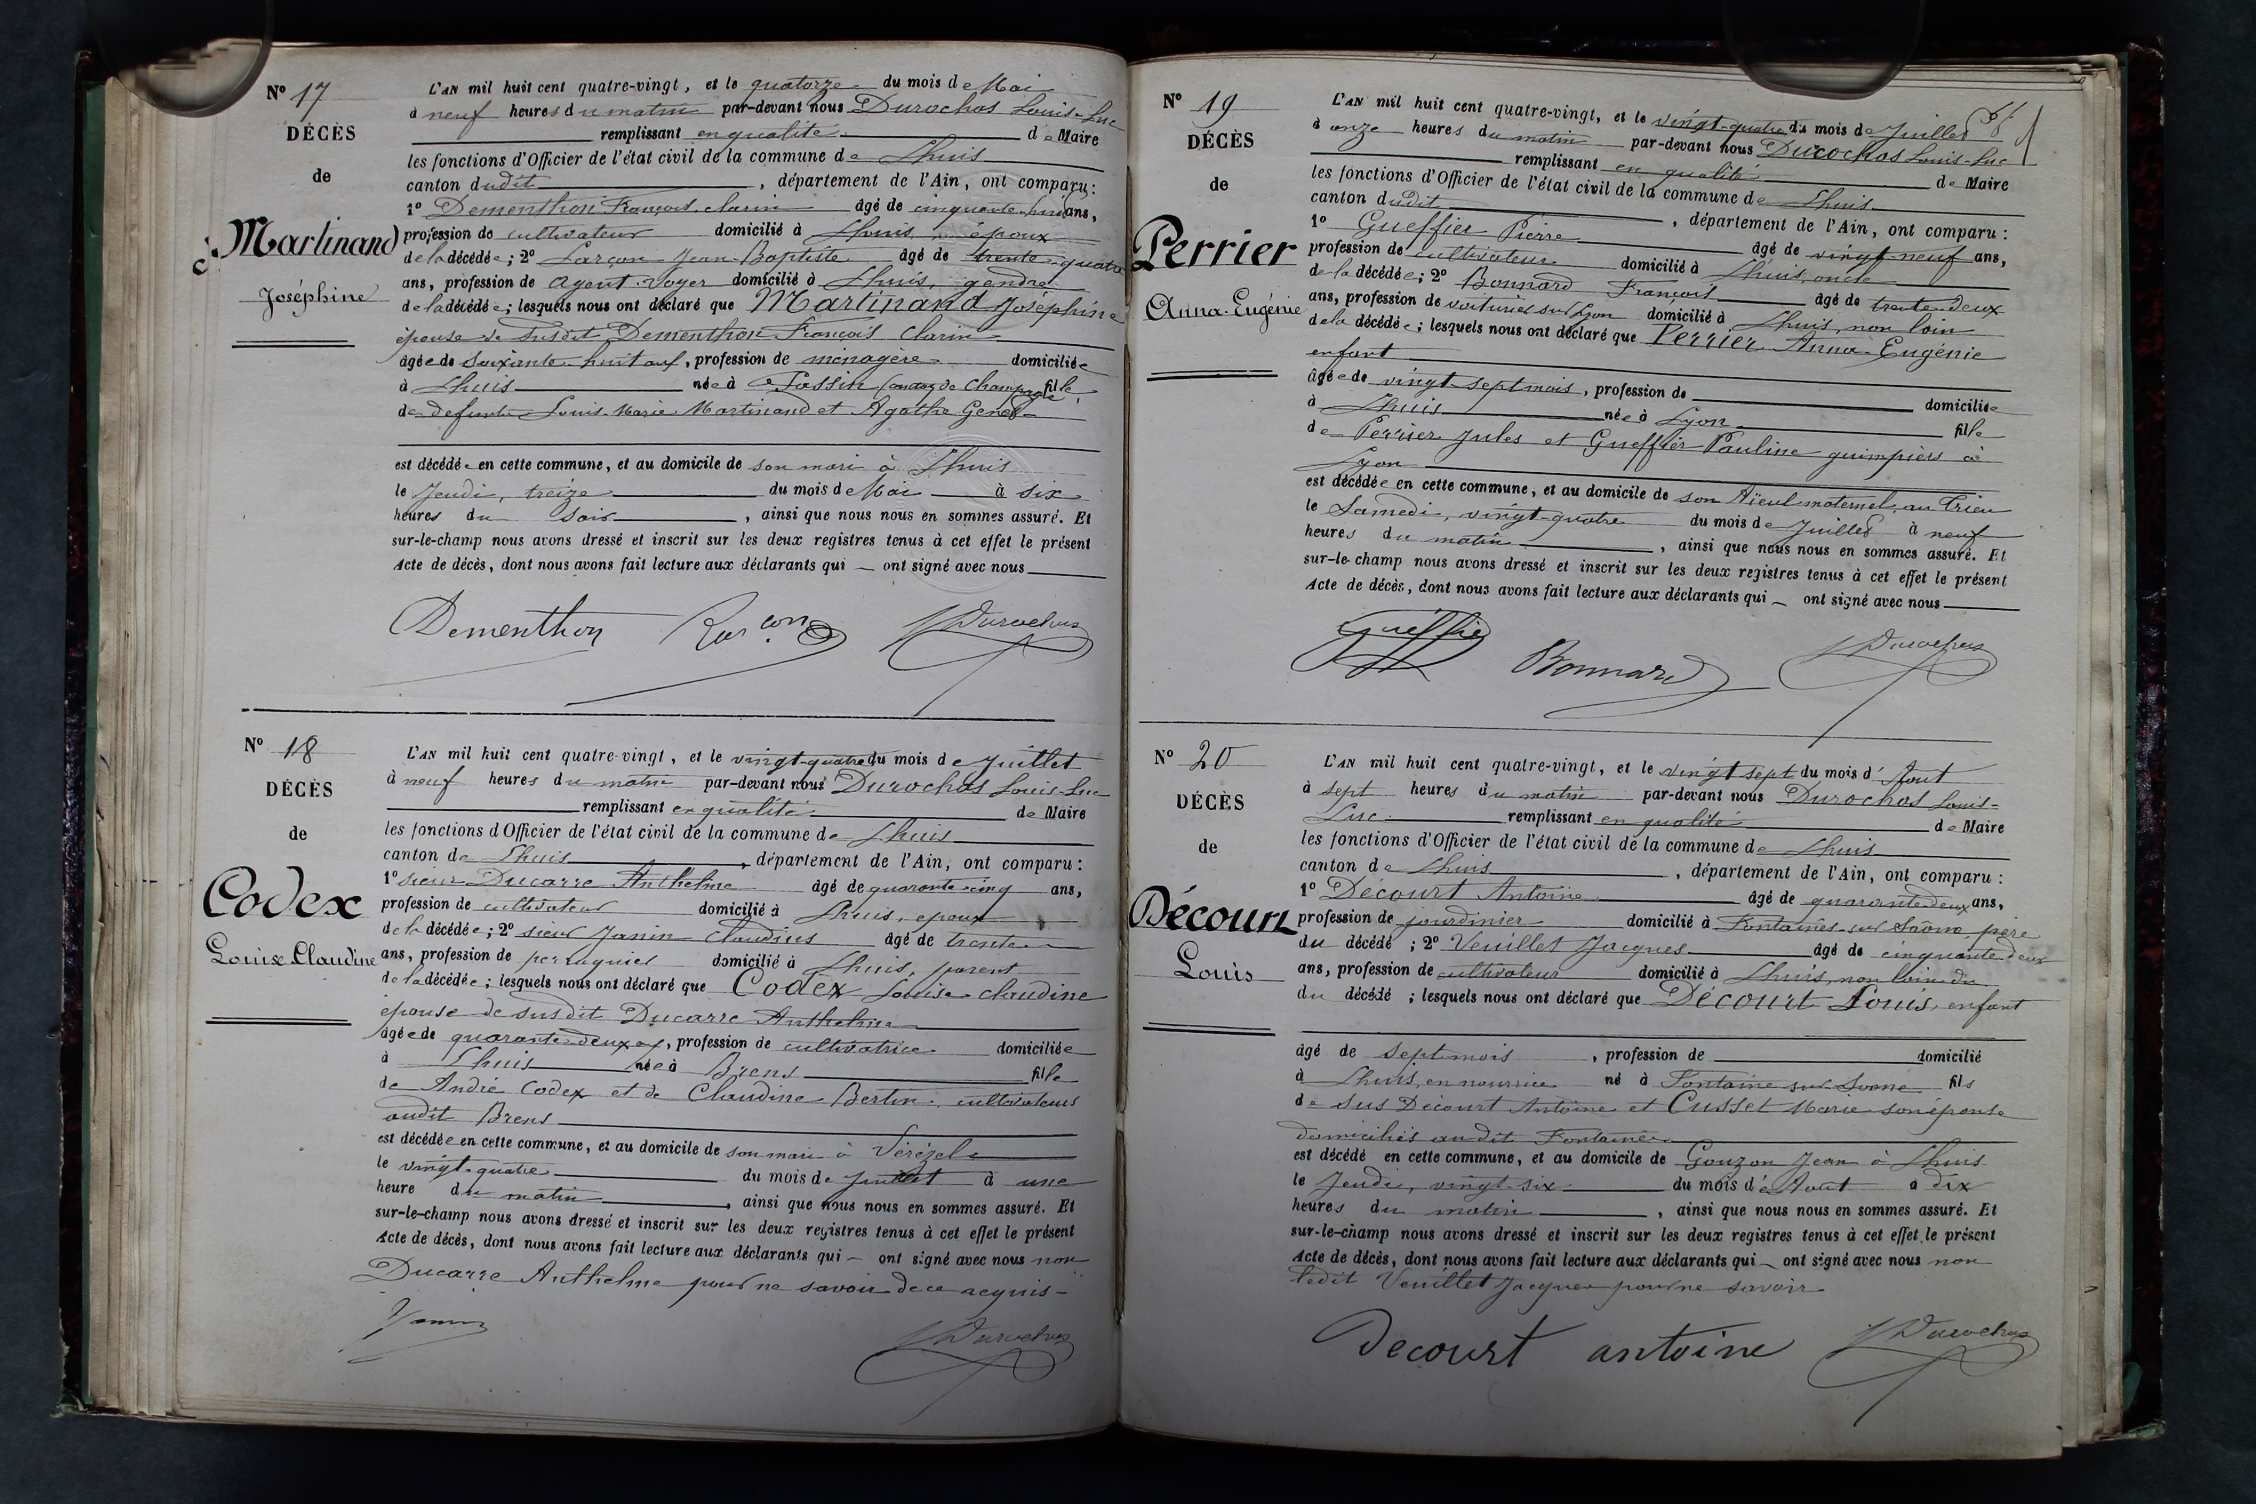 N° 17
DÉCÈS
de
Martinand
Joséphine
L'AN mil huit cent quatre-vingt, et le quatorze du mois de Mai
à neuf heures du matin par-devant nous Durochas Louis-Luc
remplissant en qualité de Maire
les fonctions d'Officier de l'état civil de la commune de Lhuis
canton dudit, département de l'Ain, ont comparu :
1° Dementhon François clarin âgé de cinquante-huit ans,
profession de cultivateur domicilié à Lhuis, époux
de la décédée ; 2° Jean-Baptiste âgé de trente-quatre
ans, profession de agent-voyer domicilié à Lhuis, gendre
de la décédée ; lesquels nous ont déclaré que Martinand Joséphine
épouse de susdit Dementhon François clarin
âgée de soixante-huit ans, profession de ménagère domiciliée
à Lhuis née à canton de Champagne, fille
de defunts Louis-Marie Martinand et Agathe
est décédée en cette commune, et au domicile de son mari à Lhuis
le Jeudi, treize du mois de Mai à six
heures du soir, ainsi que nous nous en sommes assuré. Et
sur-le-champ nous avons dressé et inscrit sur les deux registres tenus à cet effet le présent
Acte de décès, dont nous avons fait lecture aux déclarants qui — ont signé avec nous
Dementhon Durochas
N° 18
DÉCÈS
de
Codex
Louise Claudine
L'AN mil huit cent quatre-vingt, et le vingt-quatre du mois de Juillet
à neuf heures du matin par-devant nous Durochas Louis-Luc
remplissant en qualité de Maire
les fonctions d'Officier de l'état civil de la commune de Lhuis
canton de Lhuis, département de l'Ain, ont comparu :
1° sieur Ducarre Anthelme âgé de quarante-cinq ans,
profession de cultivateur domicilié à Lhuis, époux
de la décédée ; 2° sieur Janin Claudius âgé de trente
ans, profession de perruquier domicilié à Lhuis, parent
de la décédée ; lesquels nous ont déclaré que Codex Louise claudine
épouse de susdit Ducarre Anthelme
âgée de quarante-deux ans, profession de cultivatrice domiciliée
à Lhuis née à Brens fille
de André Codex et de Claudine Bertin, cultivateurs
audit Brens
est décédée en cette commune, et au domicile de son mari à
le vingt-quatre du mois de juillet à une
heure du matin, ainsi que nous nous en sommes assuré. Et
sur-le-champ nous avons dressé et inscrit sur les deux registres tenus à cet effet le présent
Acte de décès, dont nous avons fait lecture aux déclarants qui — ont signé avec nous non
Ducarre Anthelme pour ne savoir de ce acquis -
Durochas
N° 19
DÉCÈS
de
Perrier
Anna-Eugénie
L'AN mil huit cent quatre-vingt, et le vingt-quatre du mois de Juillet
à onze heures du matin par-devant nous Durochas Louis-Luc
remplissant en qualité de Maire
les fonctions d'Officier de l'état civil de la commune de Lhuis
canton dudit, département de l'Ain, ont comparu :
1° Gueffier Pierre âgé de vingt-neuf ans,
profession de cultivateur domicilié à Lhuis, oncle
de la décédée ; 2° Bonnard François âgé de trente-deux
ans, profession de voiturier sur Lyon domicilié à Lhuis, non loin
de la décédée ; lesquels nous ont déclaré que Perrier Anna-Eugénie
enfant
âgée de vingt sept mois, profession de domiciliée
à Lhuis née à Lyon fille
de Perrier Jules et Gueffier Pauline guimpiers à
Lyon
est décédée en cette commune, et au domicile de son Aïeul maternel, au Crieu
le Samedi, vingt-quatre du mois de Juillet à neuf
heures du matin, ainsi que nous nous en sommes assuré. Et
sur-le-champ nous avons dressé et inscrit sur les deux registres tenus à cet effet le présent
Acte de décès, dont nous avons fait lecture aux déclarants qui — ont signé avec nous
Gueffier Bonnard Durochas
N° 20
DÉCÈS
de
Décourt
Louis
L'AN mil huit cent quatre-vingt, et le vingt sept du mois d'Aout
à sept heures du matin par-devant nous Durochas Louis-
Luc remplissant en qualité de Maire
les fonctions d'Officier de l'état civil de la commune de Lhuis
canton de Lhuis, département de l'Ain, ont comparu :
1° Décourt Antoine âgé de quarante deux ans,
profession de jardinier domicilié à Fontaines-sur Saône père
du décédé ; 2° Veuillet Jacques âgé de cinquante deux
ans, profession de cultivateur domicilié à Lhuis, non loin du
du décédé ; lesquels nous ont déclaré que Décourt Louis, enfant
âgé de sept mois, profession de domicilié
à Lhuis, en nourrice né à Fontaine sur Saone fils
de sus Décourt Antoine et Cusset Marie son épouse
domiciliés au dit Fontaines
est décédé en cette commune, et au domicile de Gouzon Jean à Lhuis
le Jeudi, vingt-six du mois d'Aout à dix
heures du matin, ainsi que nous nous en sommes assuré. Et
sur-le-champ nous avons dressé et inscrit sur les deux registres tenus à cet effet le présent
Acte de décès, dont nous avons fait lecture aux déclarants qui — ont signé avec nous non
ledit Veuillet Jacques pour ne savoir
Decourt antoine Durochas